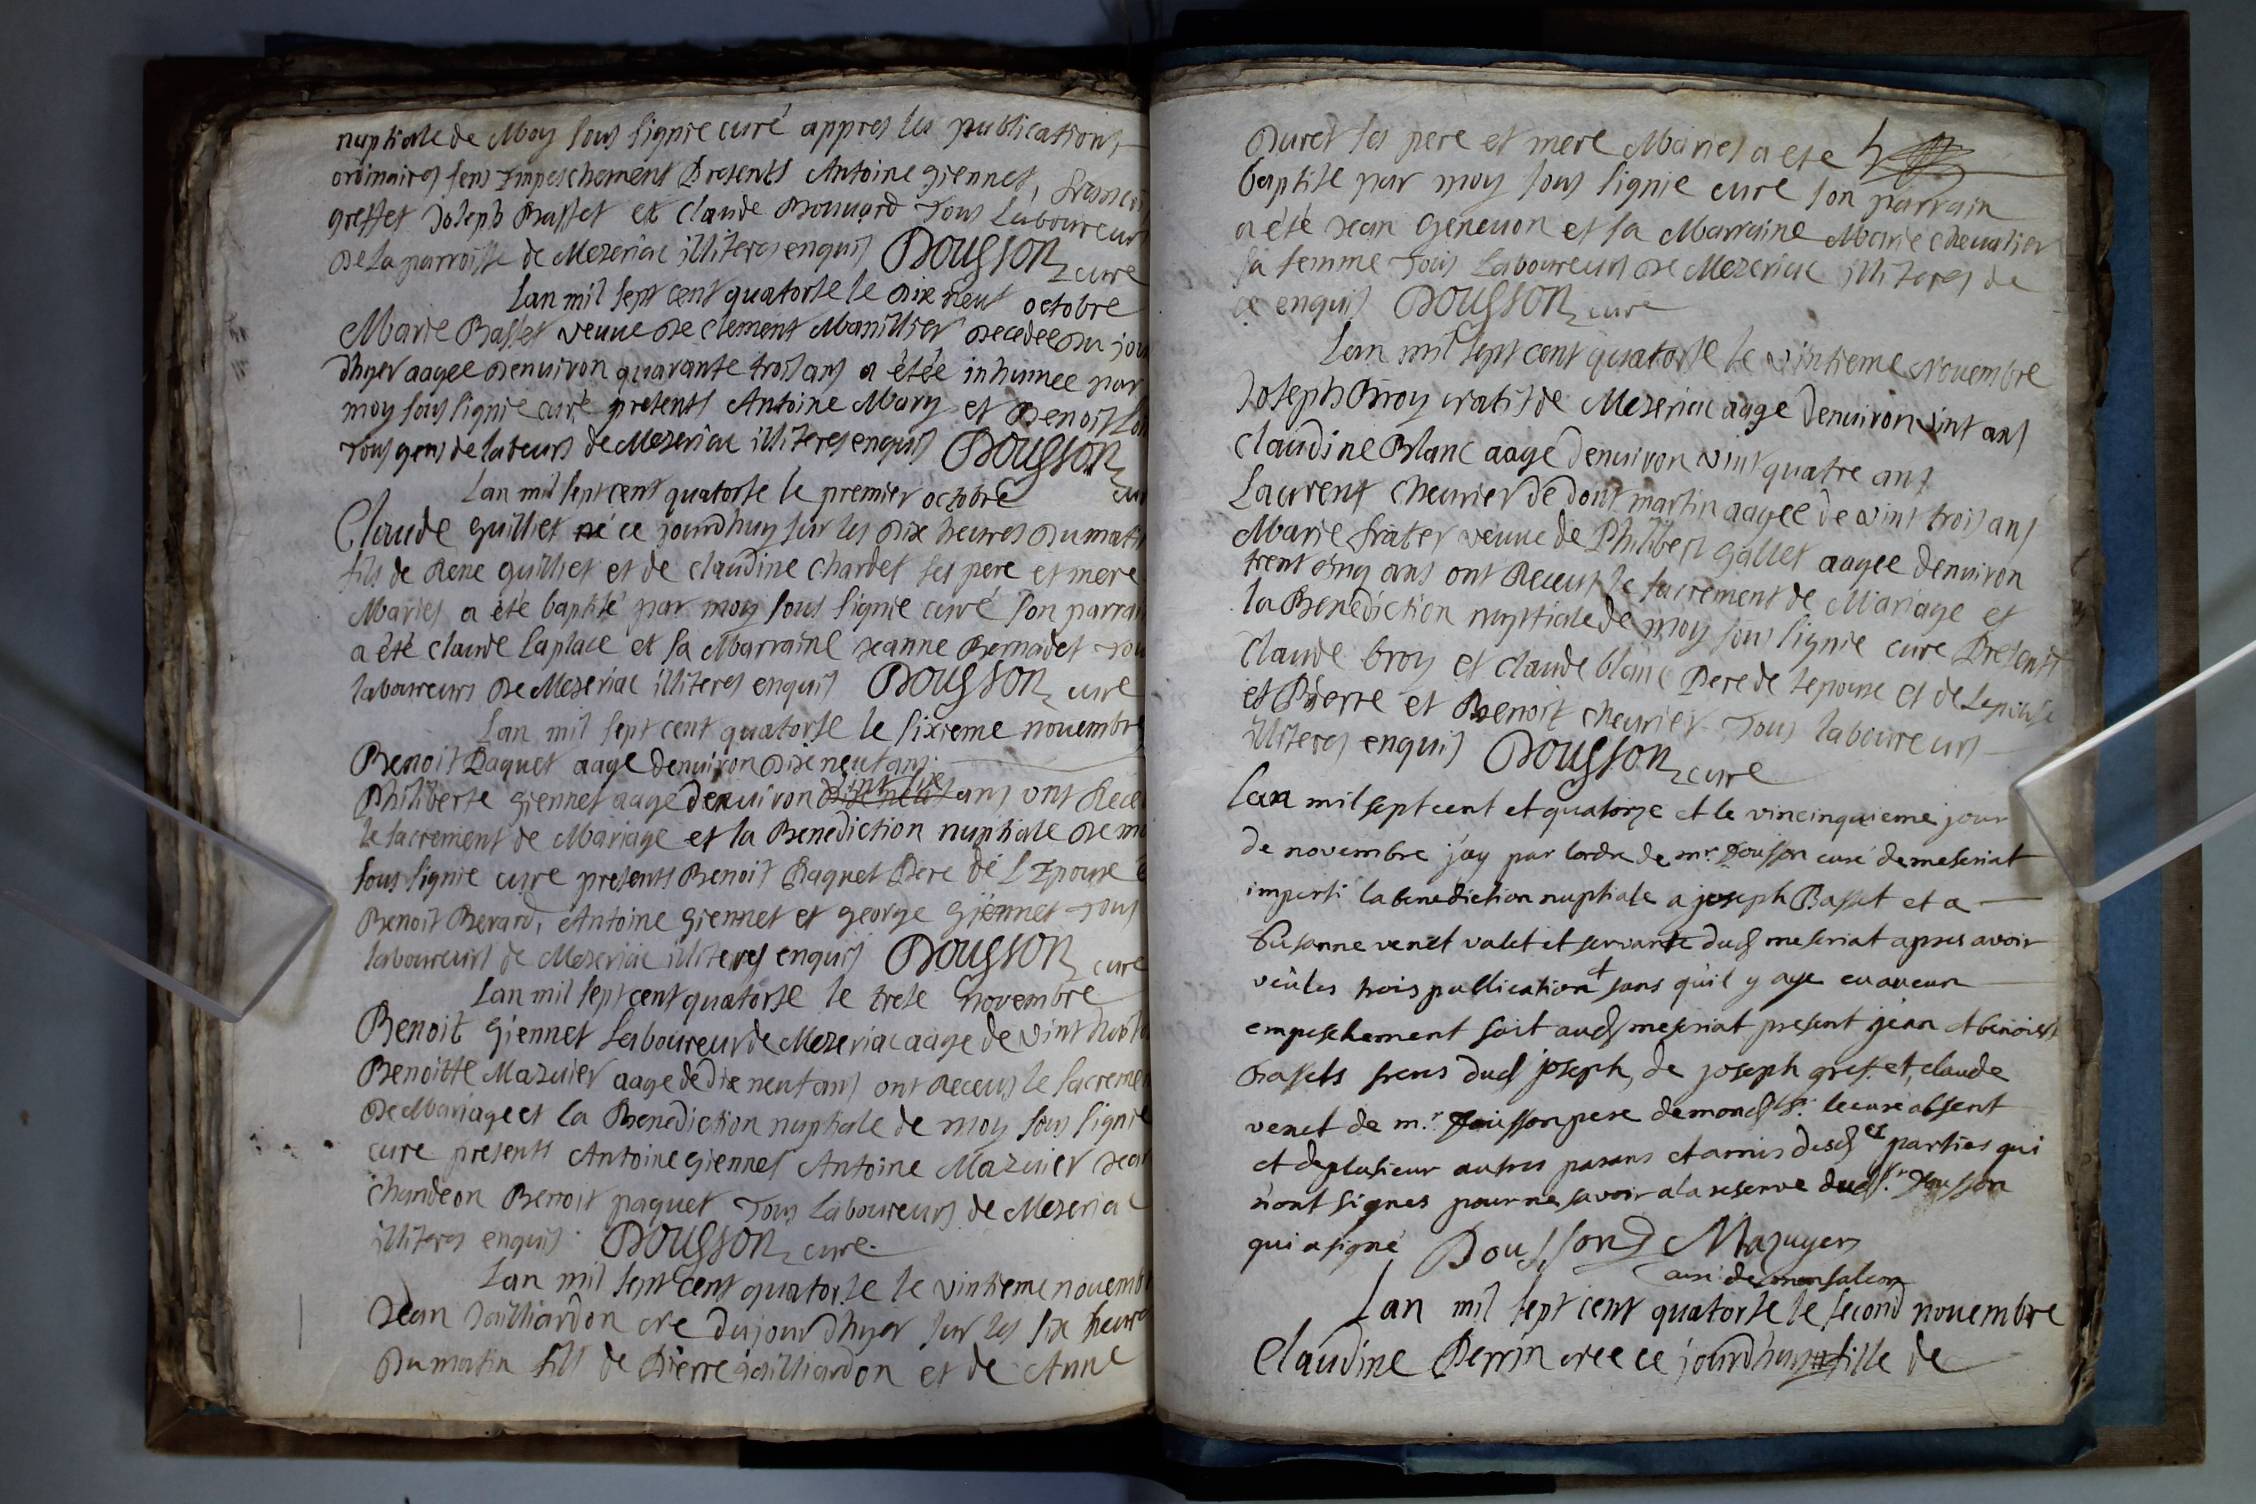 nuptiale de Moy sous signie curé appres les publications
ordinaires sens Impeschement Presents Antoine giennet, francoi
greffet Joseph Basset et Claude Bouuard Tous Laboureurs
De La parroisse de Mezeriac illiteres enquis Dousson curé
Lan mil sept cent quatorse le dix neuf octobre
Marie Basset veuue de clement Manillier decedee du jour
dhyer aagee denuiron quarante trois ans a étée inhumee par
moy sous signie curé presents Antoine Mary et Benoit
Tous gens de labeurs de Mezeriac illiteres enquis Dousson cu
Lan mil sept cent quatorse le premier octobre
Claude guilliet né ce jourdhuy sur les dix heures du mati
fils de Rene guilliet et de claudine Chardet ses pere et mere
Maries a été baptisé par moy sous signie curé son parrai
a été claude Laplace et sa Marraine Jeanne Bernadet Tou
laboureurs De Mezeriac illiteres enquis Dousson curé
Lan mil sept cent quatorse le sixieme novembre
Benoit Paquet aage denuiron dixneuf ans
Philiberte giennet aage denuiron ans ont Rece
le sacrement de Mariage et la Benediction nuptiale de mo
sous signie cure presents Benoit Paquet Pere de L Epoux e
Benoit Berard, Antoine Giennet et george giennet Tous
laboureurs de Mezeriac illiteres enquis Dousson cure
Lan mil sept cent quatorse le trese novembre
Benoit Giennet Laboureur de Mezeriac aage de vint huit
Benoitte Mazuier aage de dix neuf ans ont Receus le sacreme
De Mariage et la Benediction nuptiale de moy sous signie
cure presents Antoine giennet Antoine Mazuier Jean
chandeon Benoit paquet Tous Laboureurs de Mezeriac
illiteres enquis Dousson cure
Lan mil sept cent quatorse le vintieme nouemb
Jean Jailliardon dujourdhyer sur les six heures
Du matin fils de Pierre Jailliardon et de Anne
Duret ses pere et mere Maries a ete
baptise par moy sous signie cure son parrain
a été Jean Geneuon et sa Marraine Marie cheualier
sa femme Tous Laboureurs de Mezeriac illiteres de
ce enquis Dousson cure
Lan mil sept cent quatorse le vintieme Nouembre
Joseph Broy de Mezeriac aage denuiron vint ans
Claudine Blanc aage denuiron vint quatre ans
Laurent cheurier de dont martin aagee de vint trois ans
Marie frater veuue de Philibert Gallet aagee denuiron
trent cinq ans ont Receus le sacrement de Mariage et
la Benediction nupttiale de moy sous signie cure Presents
Claude broy et Claude blanc Pere de lepoux et de Lepouse
et Pierre et Benoit cheurier Tous laboureurs
illiteres enquis Dousson cure
Lan mil sept cent et quatorze et le vincinquieme jour
de novembre j'ay par lordre de mr. Dousson curé de meseriat
imparti la benediction nuptiale a joseph Basset et a
Susanne venet valet et servante dud meseriat apres avoir
veü les trois publication sans qu'il y aye eu aucun
empeschement soit aud meseriat present jean et benoist
Bassets freres dud joseph, de joseph grefet, claude
venet de mr. Dousson pere de mond sr. le curé absent
et de plusieur autres parans et amis desd es parties qui
n'ont signes pour ne savoir a la reserve dud sr. Dousson
qui a signé Dousson Mazuyer
curé de
Lan mil sept cent quatorse le second nouembre
Claudine Perrin nee ce jourdhuy fille de